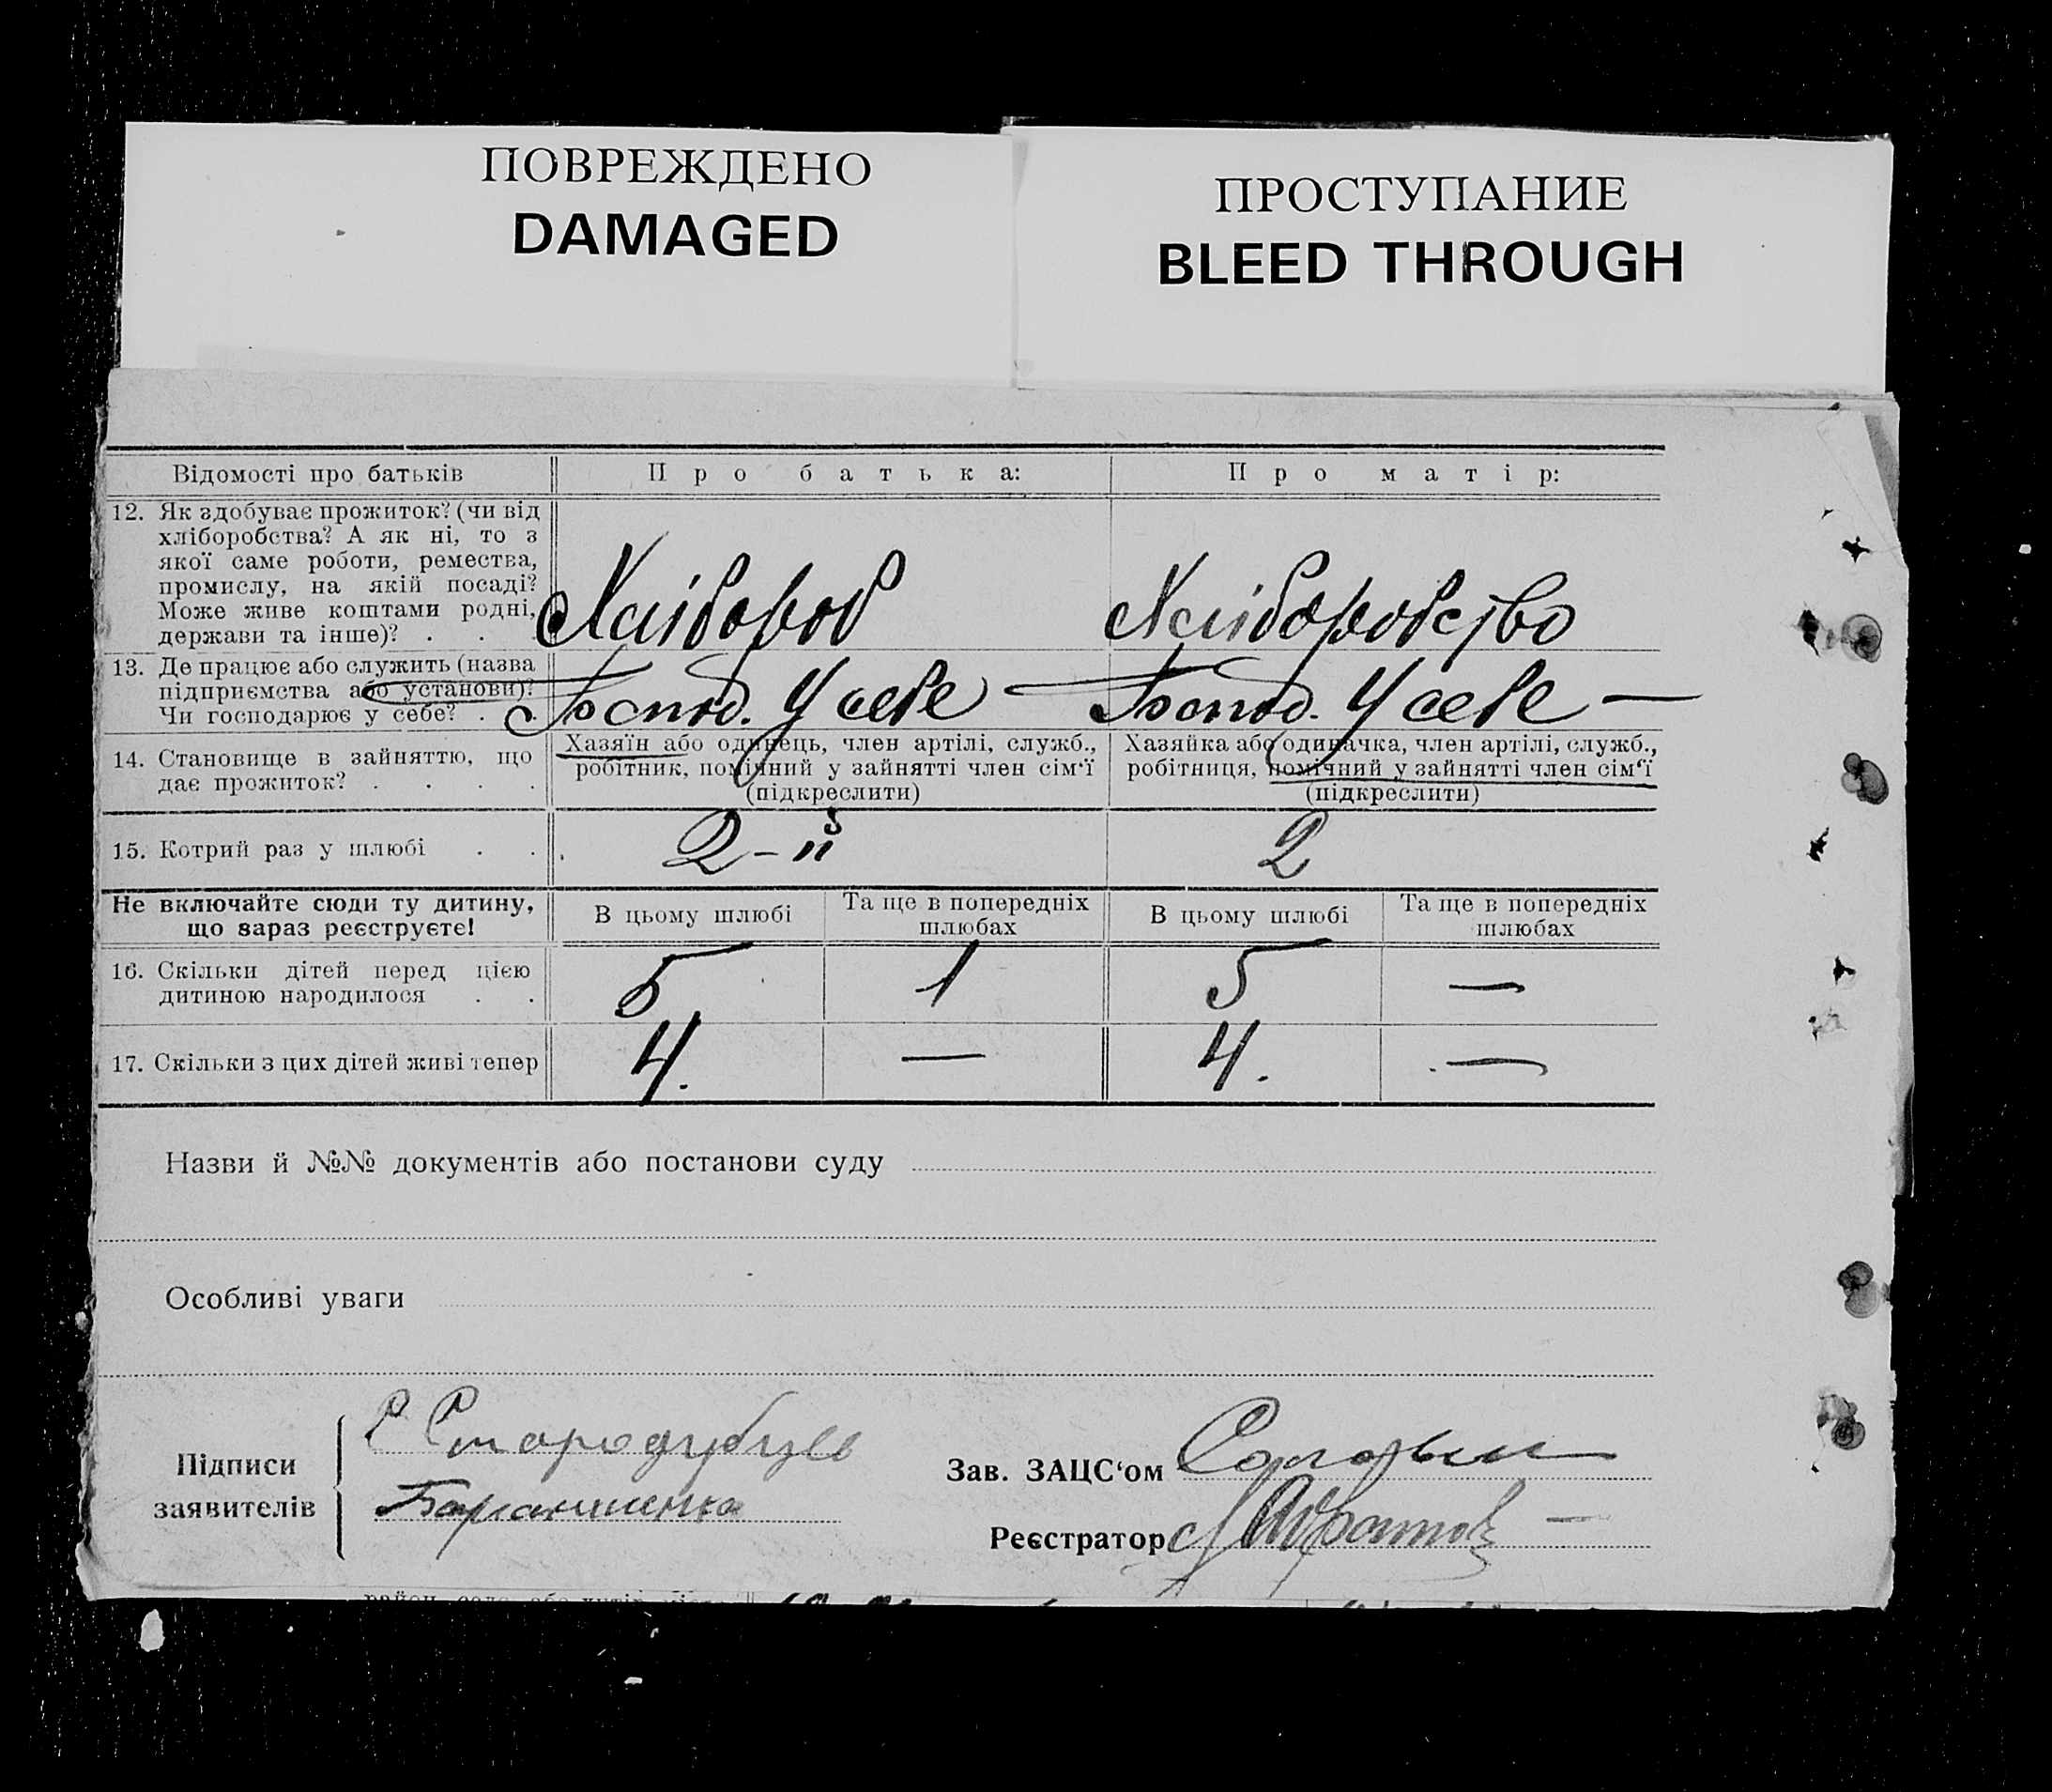 ПОВРЕЖДЕНО
DAMAGED
ПРОСТУПАНИЕ
BLEED THROUGH
Відомості про батьків
Про батька:
Про матір:
12. Як здобуває прожиток? (чи від
хліборобства? А як ні, то з
якої саме роботи, ремества,
промислу, на якій посаді?
Може живе коштами родні,
держави та інше)? . . .
Хлібороб
Хліборобство
13. Де працює або служить (назва
підприємства або установи)?
Чи господарює у себе? . .
Господ. У себе —
Господ. У себе —
14. Становище в зайняттю, що
дає прожиток? . . . .
Хазяїн або одинець, член артілі, служб.,
робітник, помічний у зайнятті член сім'ї
(підкреслити)
Хазяйка або одиначка, член артілі, служб.,
робітниця, помічний у зайнятті член сім'ї
(підкреслити)
15. Котрий раз у шлюбі . .
2-й
2
Не включайте сюди ту дитину,
що зараз реєструєте!
В цьому шлюбі
Та ще в попередніх
шлюбах
В цьому шлюбі
Та ще в попередніх
шлюбах
16. Скільки дітей перед цією
дитиною народилося . .
5
1
5
—
17. Скільки з цих дітей живі тепер
4.
—
4.
—
Назви й №№ документів або постанови суду
Особливі уваги
Підписи
заявителів
С Стародубцев
Зав. ЗАЦС'ом
Реєстратор